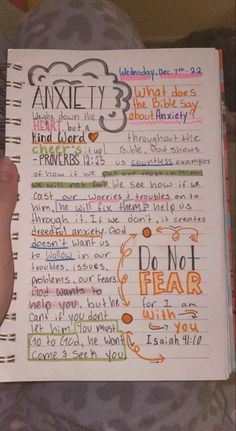 Wednesday, Dec. 7th. 22
ANXIETY
What does
the Bible say
about Anxiety?
Weighs down the
HEART, but a
Kind Word
cheer's it up!
- PROVERBS 12:25
Throughout the
Bible, God shows
us countless examples
of how if we put our trust in Him
we will not fail. We see how if we
cast our worries & troubles on to
him, he will fix them & help us
through it. If we don't, it creates
dreedful anxiety. God
doesn't want us
to wallow in our
troubles, issues,
problems, our fears.
God wants to
help you, but he
cant if you dont
let him. You must
Go to God, he wont
come & seek you
Do Not
FEAR
for I am
with
you
Isaiah 41:10